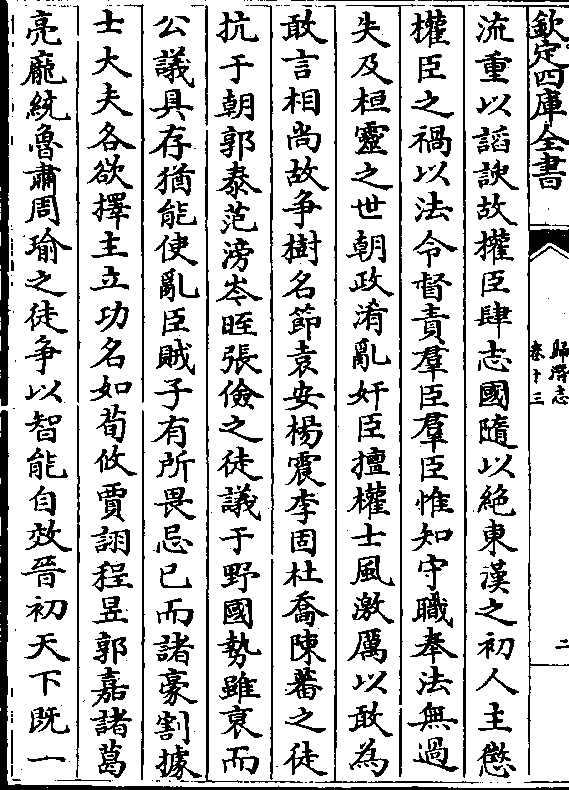 欽定四庫全書
歸潛志
卷十三
二
流重以謟諛故權臣肆志國隨以絶東漢之初人主懲
權臣之禍以法令督責羣臣羣臣惟知守職奉法無過
失及桓靈之世朝政淆亂奸臣擅權士風激厲以敢為
敢言相尚故争樹名節袁安楊震李固杜喬陳蕃之徒
抗于朝郭泰范滂岑晊張儉之徒議于野國勢雖衰而
公議具存猶能使亂臣賊子有所畏忌已而諸豪割據
士大夫各欲擇主立功名如荀攸賈詡程昱郭嘉諸葛
亮龐統魯肅周瑜之徒争以智能自效晉初天下既一